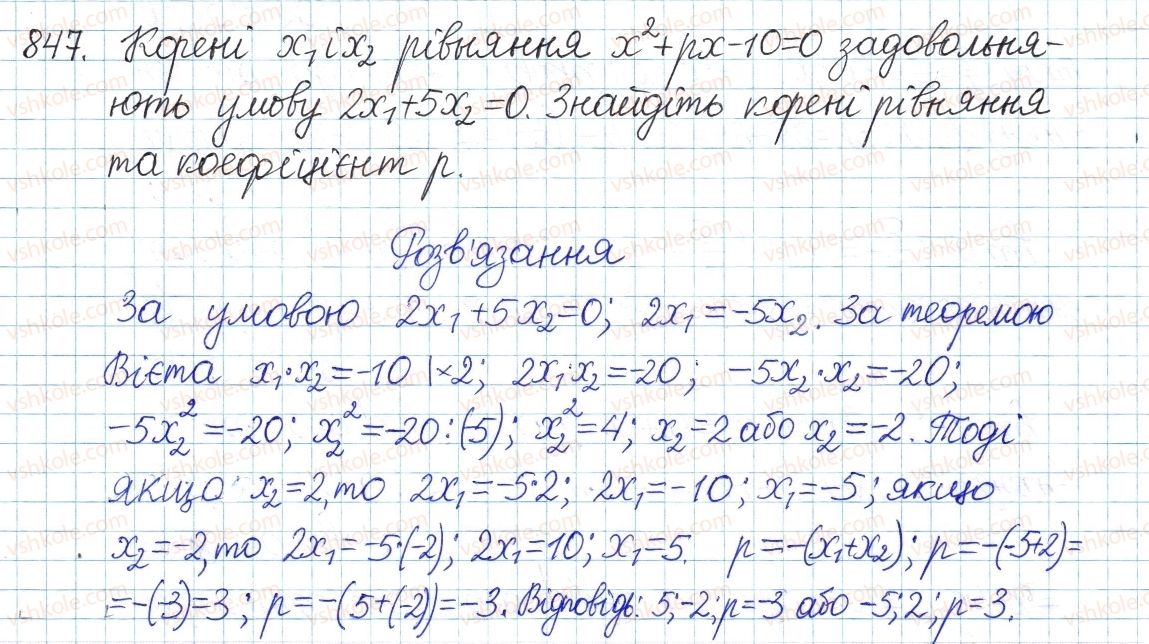 847. Корені x₁ і x₂ рівняння x²+px-10=0 задовольня-
ють умову 2x₁+5x₂=0. Знайдіть корені рівняння
та коефіцієнт p.
Розв'язання
За умовою 2x₁+5x₂=0; 2x₁=-5x₂. За теоремою
Вієта x₁·x₂=-10 |×2; 2x₁·x₂=-20; -5x₂·x₂=-20;
-5x₂²=-20; x₂²=-20:(-5); x₂²=4; x₂=2 або x₂=-2. Тоді
якщо x₂=2, то 2x₁=-5·2; 2x₁=-10; x₁=-5; якщо
x₂=-2, то 2x₁=-5·(-2); 2x₁=10; x₁=5. p=-(x₁+x₂); p=-(-5+2)=
=-(-3)=3; p=-(5+(-2))=-3. Відповідь: 5;-2; p=-3 або -5; 2; p=3.